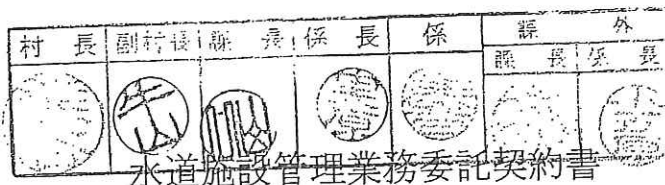 村長 副村長 課長 係長 係 課外
課長 係長
水道施設管理業務委託契約書